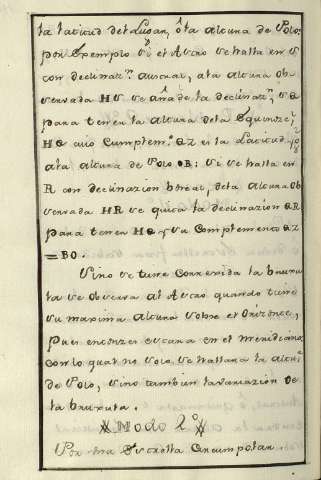 la latitud del Lugar, ô la altura de Polo;
por Exemplo si el Astro se halla en S
con declinaz.n austral, a la altura ob
servada HS se aña de la declinaz.n, SQ
para tener la altura del Equinoz.l
HQ cuio Cumplem.to QZ es la Latitud,
a la altura de Polo OB: si se halla en
R con declinazion boreal, de la altura ob
servada HR se quita la declinazion QR
para tener HQ y su Complemento QZ
=BO.
Sino se tiene Connexida la bruxu
la se observa al Astro quando tiene
su maxima altura sobre el Orizonte,
pues entonzes estara en el meridiano
con lo qual no solo se hallara la altu.a
de Polo, sino tambien la variazion de
la bruxula.
Modo 2.o
Por una Estrella Circumpolar.